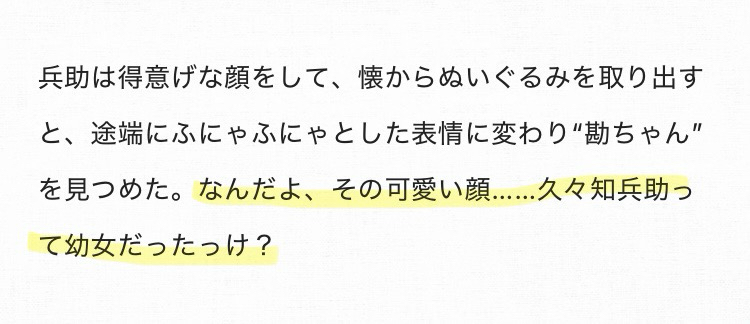 兵助は得意げな顔をして、懐からぬいぐるみを取り出す
と、途端にふにゃふにゃとした表情に変わり“勘ちゃん”
を見つめた。なんだよ、その可愛い顔……久々知兵助っ
て幼女だったっけ？